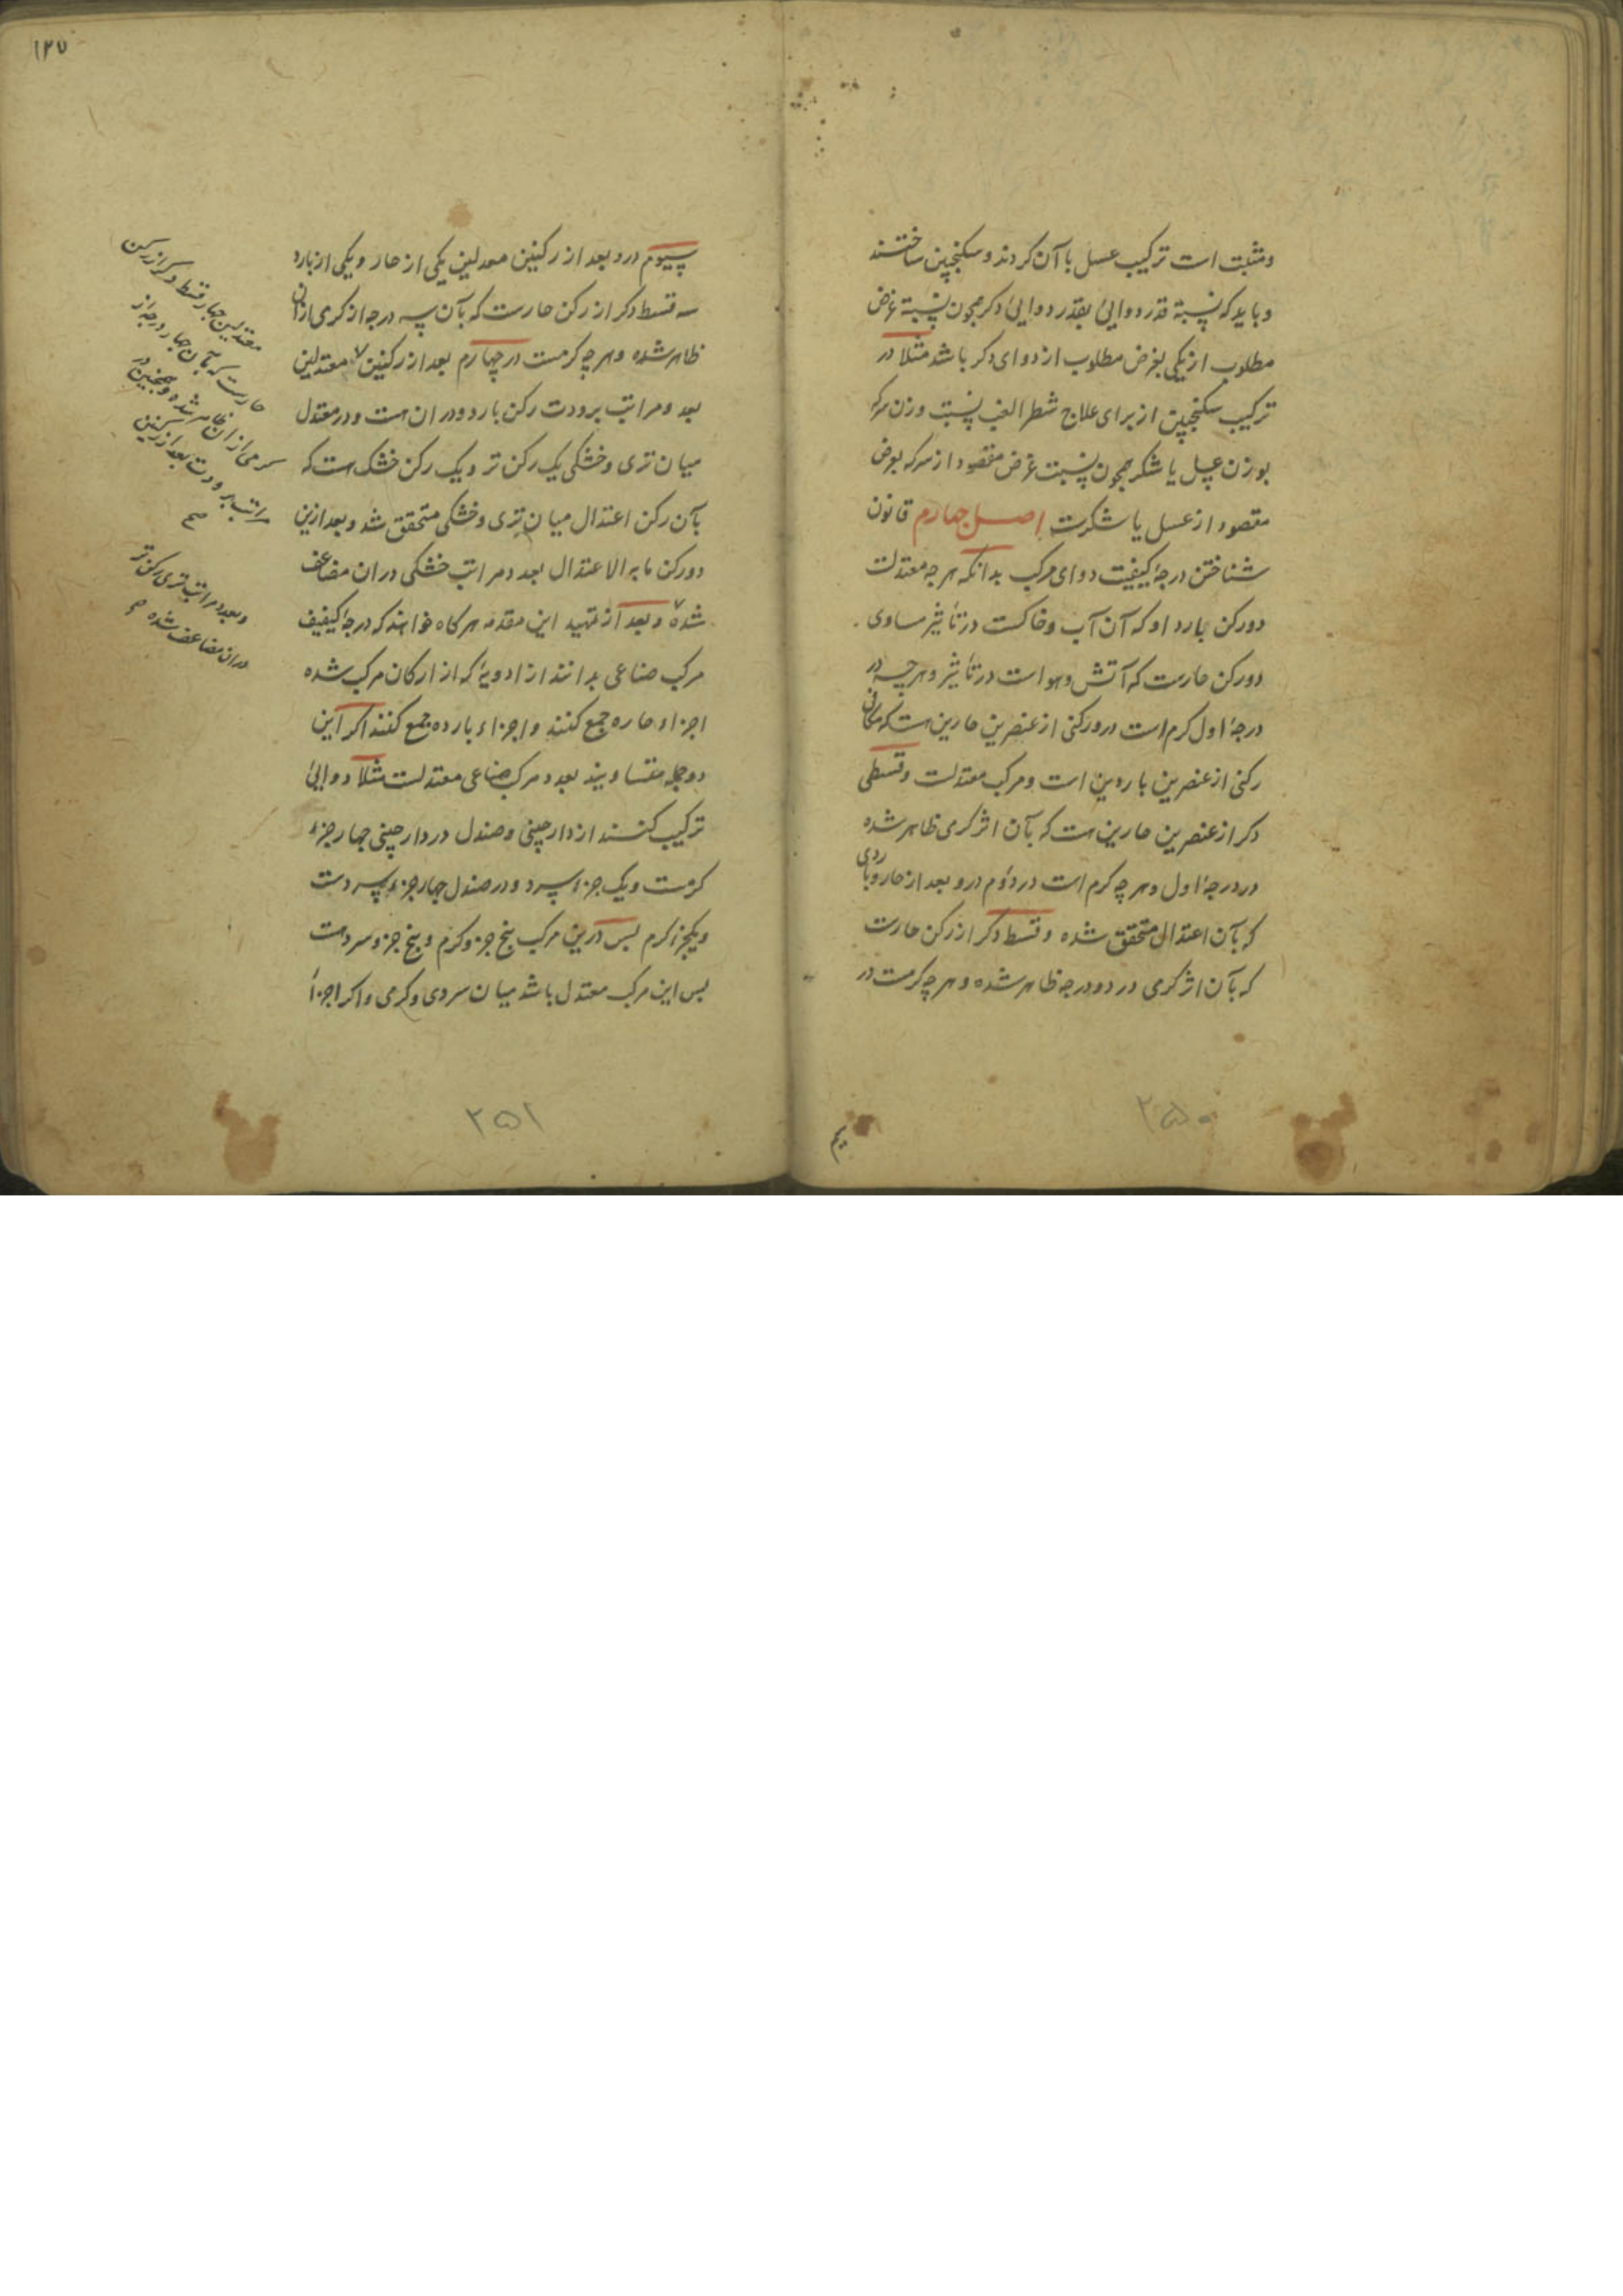 ومثبت است ترکیب عسل با آن کردند و سکنجبین ساختند
و باید که نسبة قدر دوایی بقدر دوایی دکر همچون نسبة غرض
مطلوب از یکی بغرض مطلوب از دوای دکر باشد مثلا در
ترکیب سکنجبین از برای علاج شطر الغب نسبت وزن سرکه
بوزن عسل یا شکر همچون نسبت غرض مقصود از سرکه بغرض
مقصود از عسل یا شکرست اصل چهارم قانون
شناختن درجهٔ کیفیت دوای مرکب بدانکه هرچه معتدلست
دو رکن بارد او که آن آب و خاکست در تأثیر مساوی
دو رکن حارست که آتش و هواست در تأثیر و هرچه در
درجهٔ اول کرم است درو رکنی از عنصرین حارین هست که
رکنی از عنصرین باردین است و مرکب معتدلست و قسطی
دکر از عنصرین حارین هست که بآن اثر کرمی ظاهر شده
در درجهٔ اول و هرچه کرم است در دوم درو بعد از حار و باردی
که بآن اعتدال متحقق شده دو قسط دکر از رکن حارست
که بآن اثر کرمی در دو درجه ظاهر شده و هرچه کرمست در
۲۵۰
۱۲۷
سیوم درو بعد از رکنین معدلین یکی از حار و یکی از بارد
سه قسط دکر از رکن حارست که بآن سه درجه از کرمی ازان
ظاهر شده و هرچه کرمست در چهارم بعد از رکنین معتدلین
بعد و مراتب برودت رکن بارد دران هست و در معتدل
میان تری و خشکی یک رکن تر و یک رکن خشک هست که
بآن رکن اعتدال میان تری و خشکی متحقق شد و بعد ازین
دو رکن ما به الاعتدال بعدد مراتب خشکی دران مضاعف
شده و بعد از تمهید این مقدمه هرکاه خواهند که درجهٔ کیفیت
مرکب صناعی بدانند از ادویهٔ که از ارکان مرکب شده
اجزاء حاره جمع کنند و اجزاء بارده جمع کنند اکر این
دو جمله متساویند بعدد مرکب صناعی معتدلست مثلا دوایی
ترکیب کنند از دارچینی و صندل در دارچینی چهار جزء
کرمست و یک جزء سرد و در صندل چهار جزء سردست
و یکجزء کرم بس درین مرکب پنج جزو کرم و پنج جزو سردست
بس این مرکب معتدل باشد میان سردی و کرمی و اکر اجزاء
معتدلین چهار قسط دکر از رکن
حارست که بآن چهار درجه از
کرمی ازان ظاهر شده و همچنین در
مراتب برودت بعد از رکنین
صح
و بعدد مراتب تری رکن تر
دران مضاعف شده
۲۵۱